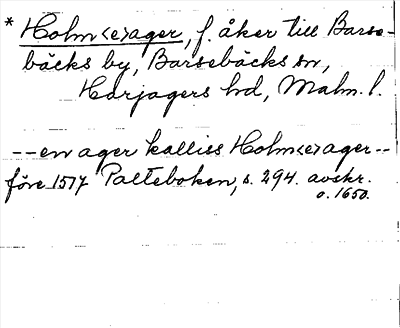 * Holm<e>ager, f. åker till Barse-
bäcks by, Barsebäcks sn,
Harjagers hd, Malm. l.
-- en ager kalliss Holm<e>ager --
före 1517 Palteboken, s. 294. avskr.
o. 1650.